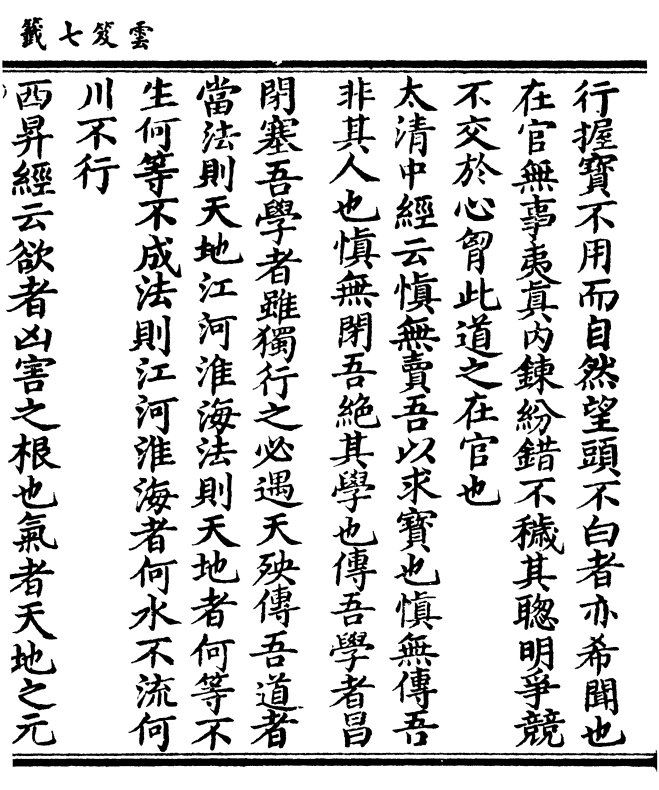 雲笈七籤
行握寶不用而自然望頭不白者亦希聞也
在官無事夷真內鍊紛錯不穢其聰明爭競
不交於心胷此道之在官也
太清中經云慎無賣吾以求寶也慎無傳吾
非其人也慎無閉吾絶其學也傳吾學者昌
閉塞吾學者雖獨行之必遇天殃傳吾道者
當法則天地江河淮海法則天地者何等不
生何等不成法則江河淮海者何水不流何
川不行
西昇經云欲者凶害之根也氣者天地之元